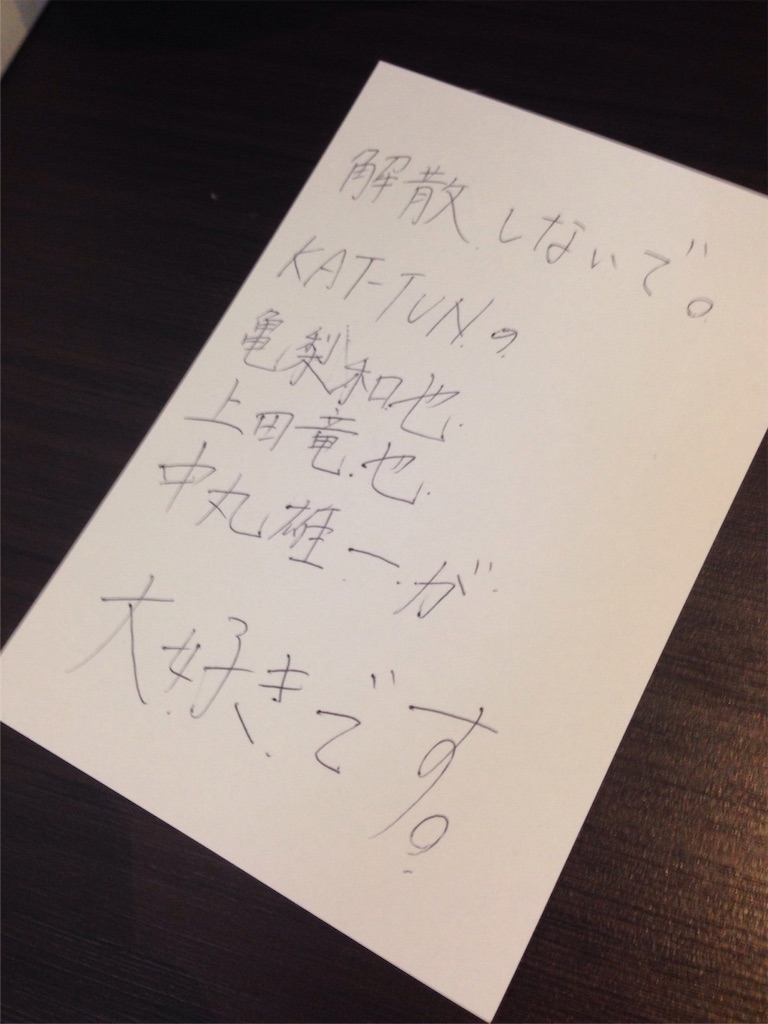 解散しないで。
KAT-TUNの
亀梨和也
上田竜也
中丸雄一が
大好きです。